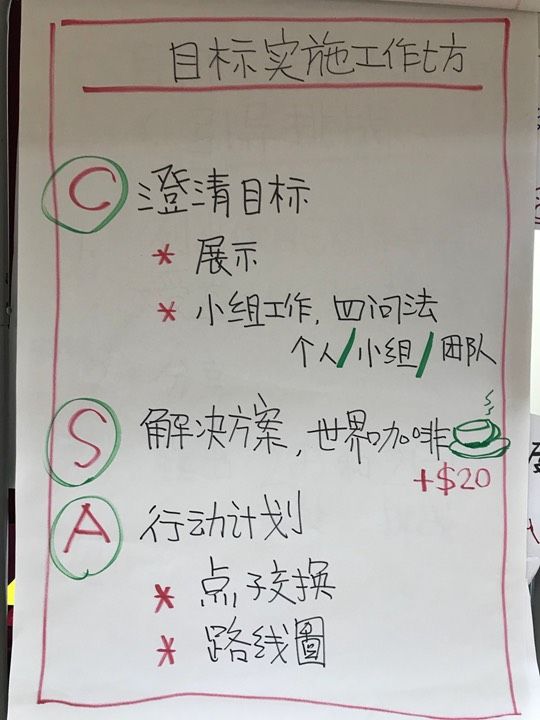 目标实施工作坊
C 澄清目标
* 展示
* 小组工作, 四问法
个人/小组/团队
S 解决方案, 世界咖啡
+$20
A 行动计划
* 点子交换
* 路线圖